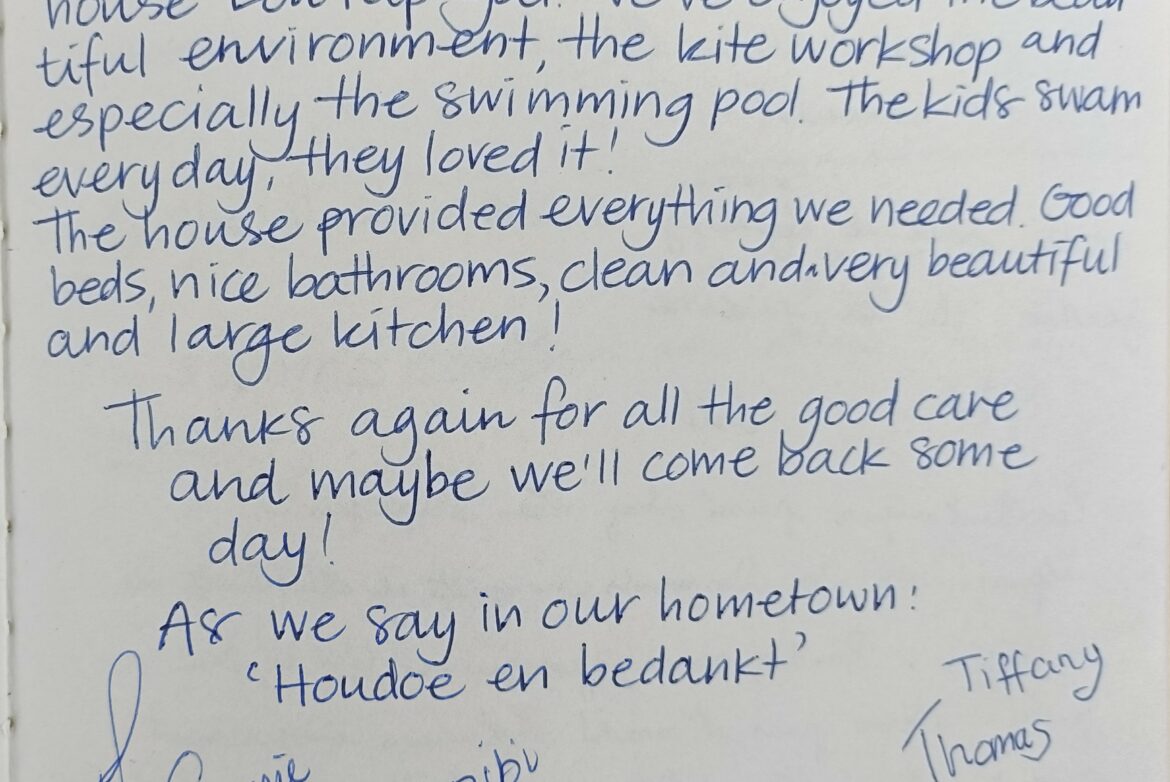 house
tiful environment, the kite workshop and
especially the swimming pool. The kids swam
every day, they loved it!
The house provided everything we needed. Good
beds, nice bathrooms, clean and very beautiful
and large kitchen!
Thanks again for all the good care
and maybe we'll come back some
day!
As we say in our hometown:
'Houdoe en bedankt'
Tiffany
Thomas